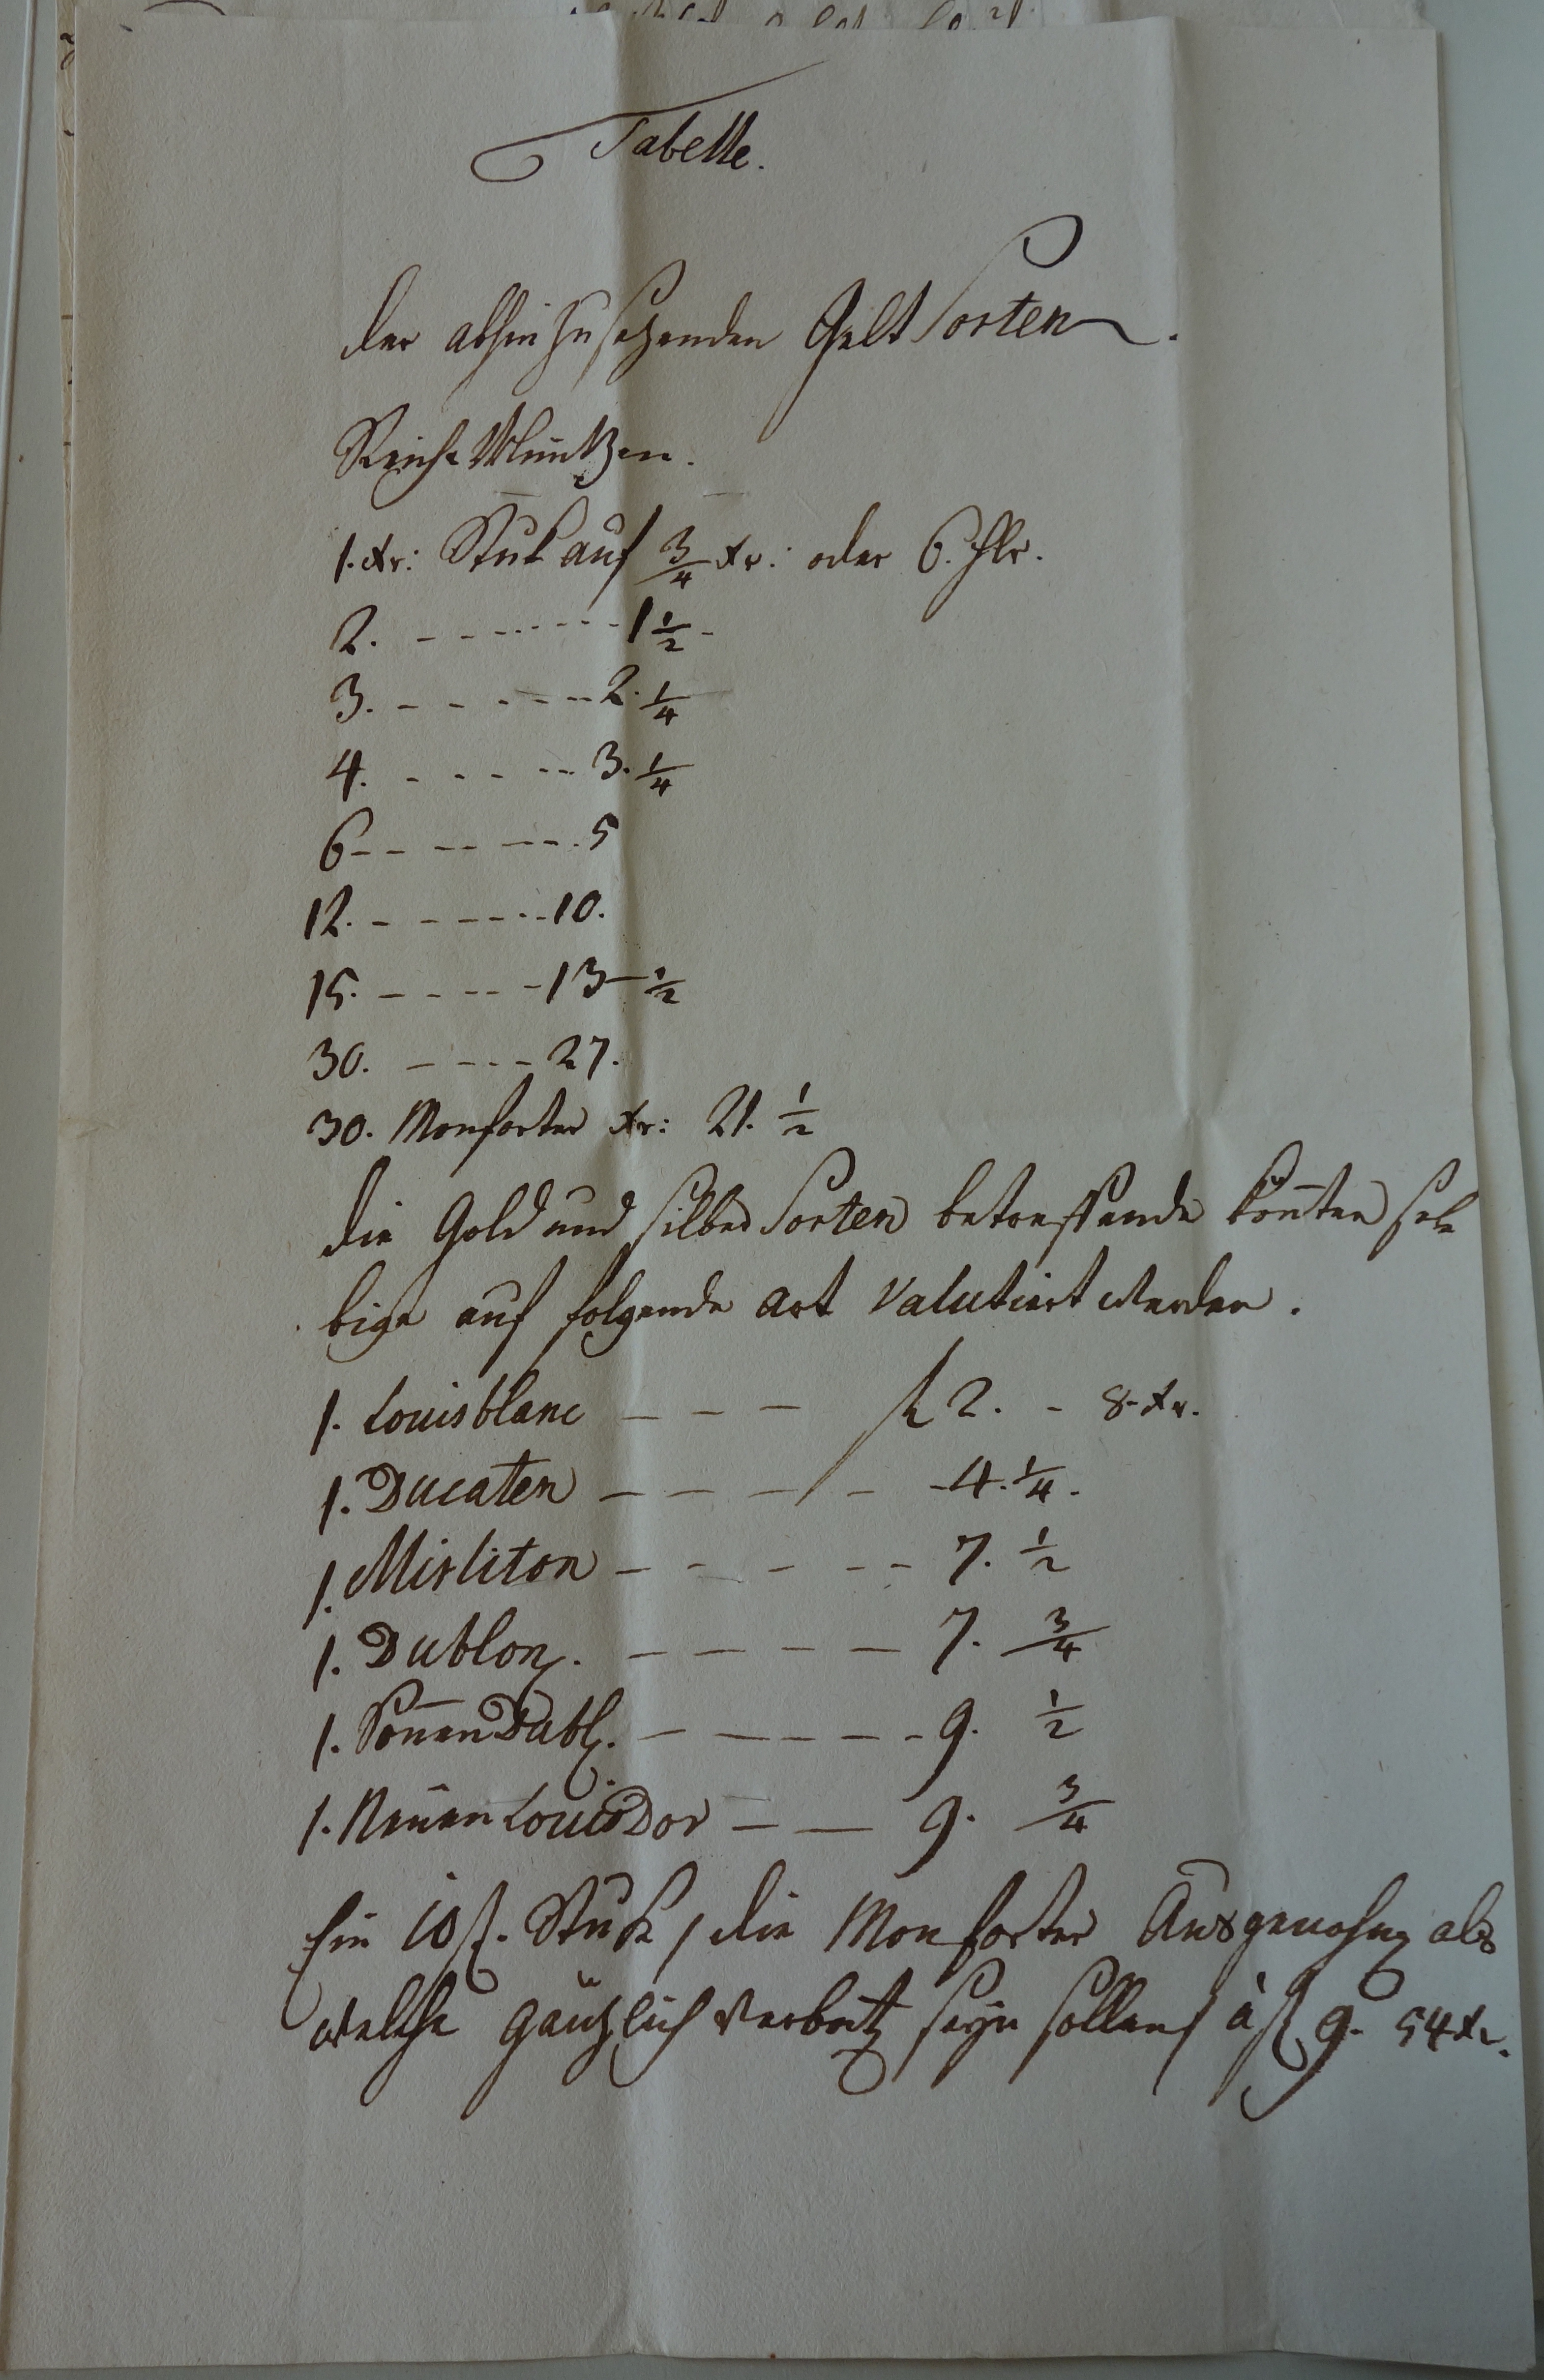 Tabelle.
der abhin zu sezenden Gelt Sorten.
Reichs Müntzen.
1. xr: Stuk auf 3/4 xr: oder 6. hlr.
2. - - - - - - - - 1 1/2 -
3. - - - - - - - 2. 1/4
4. - - - - - - 3. 1/4
6 - - - - - - - . 5
12. - - - - - - - 10.
15. - - - - - - 13 - 1/2
30. - - - - - 27.
30. Monforter xr: 21. 1/2
die Gold und silber Sorten betreffende könten sel
bige auf folgende art Valutiert werden.
1. Louisblanc - - - fl 2. - 8. xr.
1. Ducaten - - - - - - 4. 1/4.
1. Mirliton - - - - - - 7. 1/2
1. Dublon. - - - - - 7. 3/4
1. Sonnen Dubl. - - - - - - 9. 1/2
1. Neüen Louis Dor - - 9. 3/4
Ein 10 f. Stuk / die Monforter Ausgenohmen als
welche gäntzlich verbotten seyn sollen / à fl 9. 54 xr.